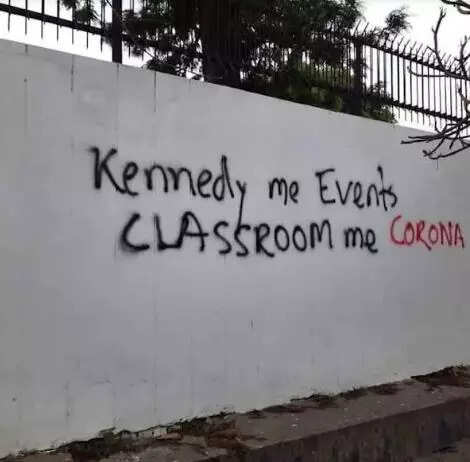 Kennedy me Events
CLASSROOM me CORONA